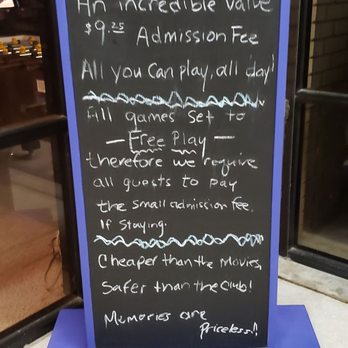 An incredible value
$9.25 Admission Fee
All you can play, all day!
All games set to
— Free Play —
therefore we require
all guests to pay
the small admission fee.
If Staying.
Cheaper than the Movies,
Safer than the Club!
Memories are
Priceless!!